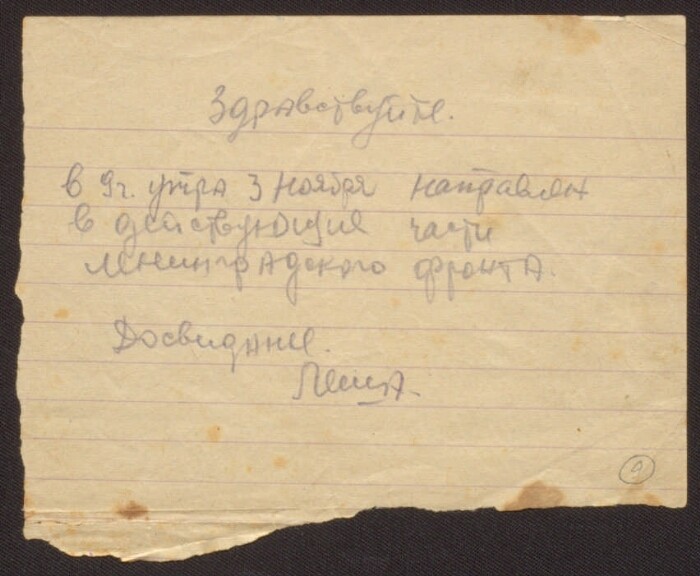 Здравствуйте.
в 9 г. утра 3 ноября направлен
в действующие части
Ленинградского фронта.
Досвидание.
Леша.
9